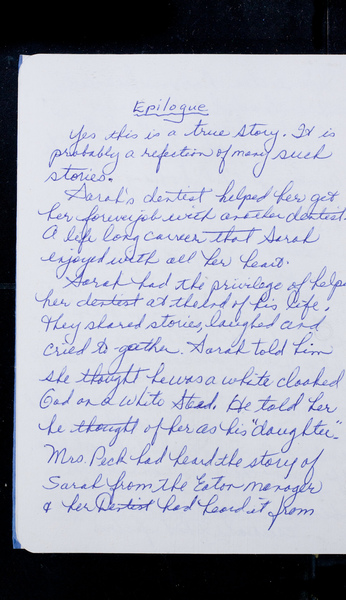 Epilogue
Yes this is a true story. It is
probably a reflection of many such
stories.
Sarah's dentist helped her get
her forever job with another dentist.
A life long career that Sarah
enjoyed with all her heart.
Sarah had the privilege of helping
her dentist at the end of his life.
They shared stories, laughed and
cried to gether. Sarah told him
she thought he was a white cloaked
God on a white Stead. He told her
he thought of her as his "daughter".
Mrs. Peck had heard the story of
Sarah from the Eaton manager
& her Dentist had heard it from